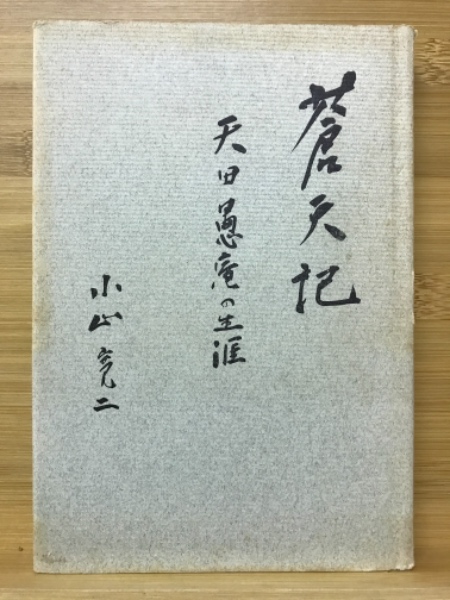 蒼天記
天田愚庵の生涯
小山寛二